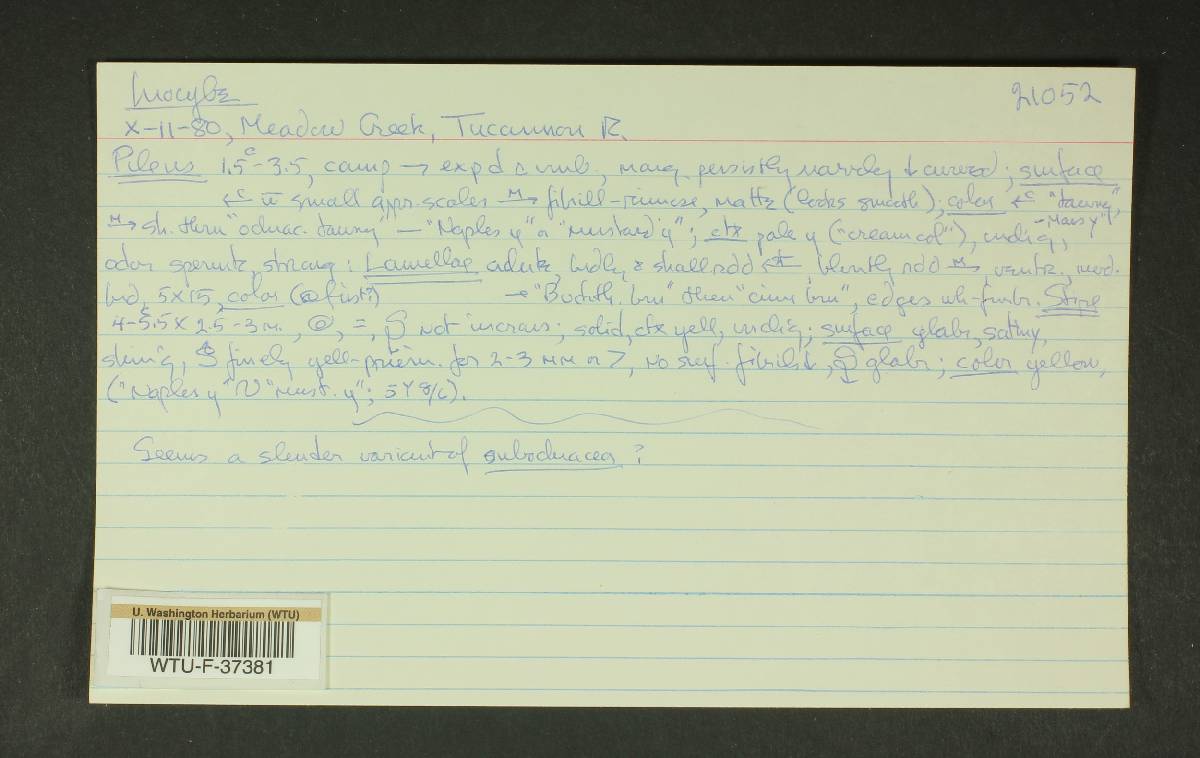 Inocybe 21052
X-11-80, Meadow Creek, Tucannon R.
Pileus 1.5-3.5, camp → exp'd c umb, marg. persist'ly narrowly ↓ curved; surface
←C w small, appr. scales M→ fibrill-rimose, matte (looks smooth); color ←C "tawny",
M→ sh. thru "ochrac. tawny" — "Naples y" or "mustard y"; ctx pale y ("cream col"), undig, - Mars y"
odor spermtc, strong; Lamellae adnate, bdly & shall. ndd bluntly ndd M→, ventr., mod.
brd, 5X15, color (@ first?) → "Buckth. brn" then "cinn brn", edges wh-fimbr. Stipe
4-5.5 X 2.5-3 m., =, not incras; solid, ctx yell, undig; surface glabr, satiny,
shin'g, finely yell-pruin. for 2-3 mm or >, no surf. fibrils ↓, glabr; color yellow,
("Naples y" "must. y"; 5Y 8/6).
Seems a slender variant of subochracea?
U. Washington Herbarium (WTU)
WTU-F-37381